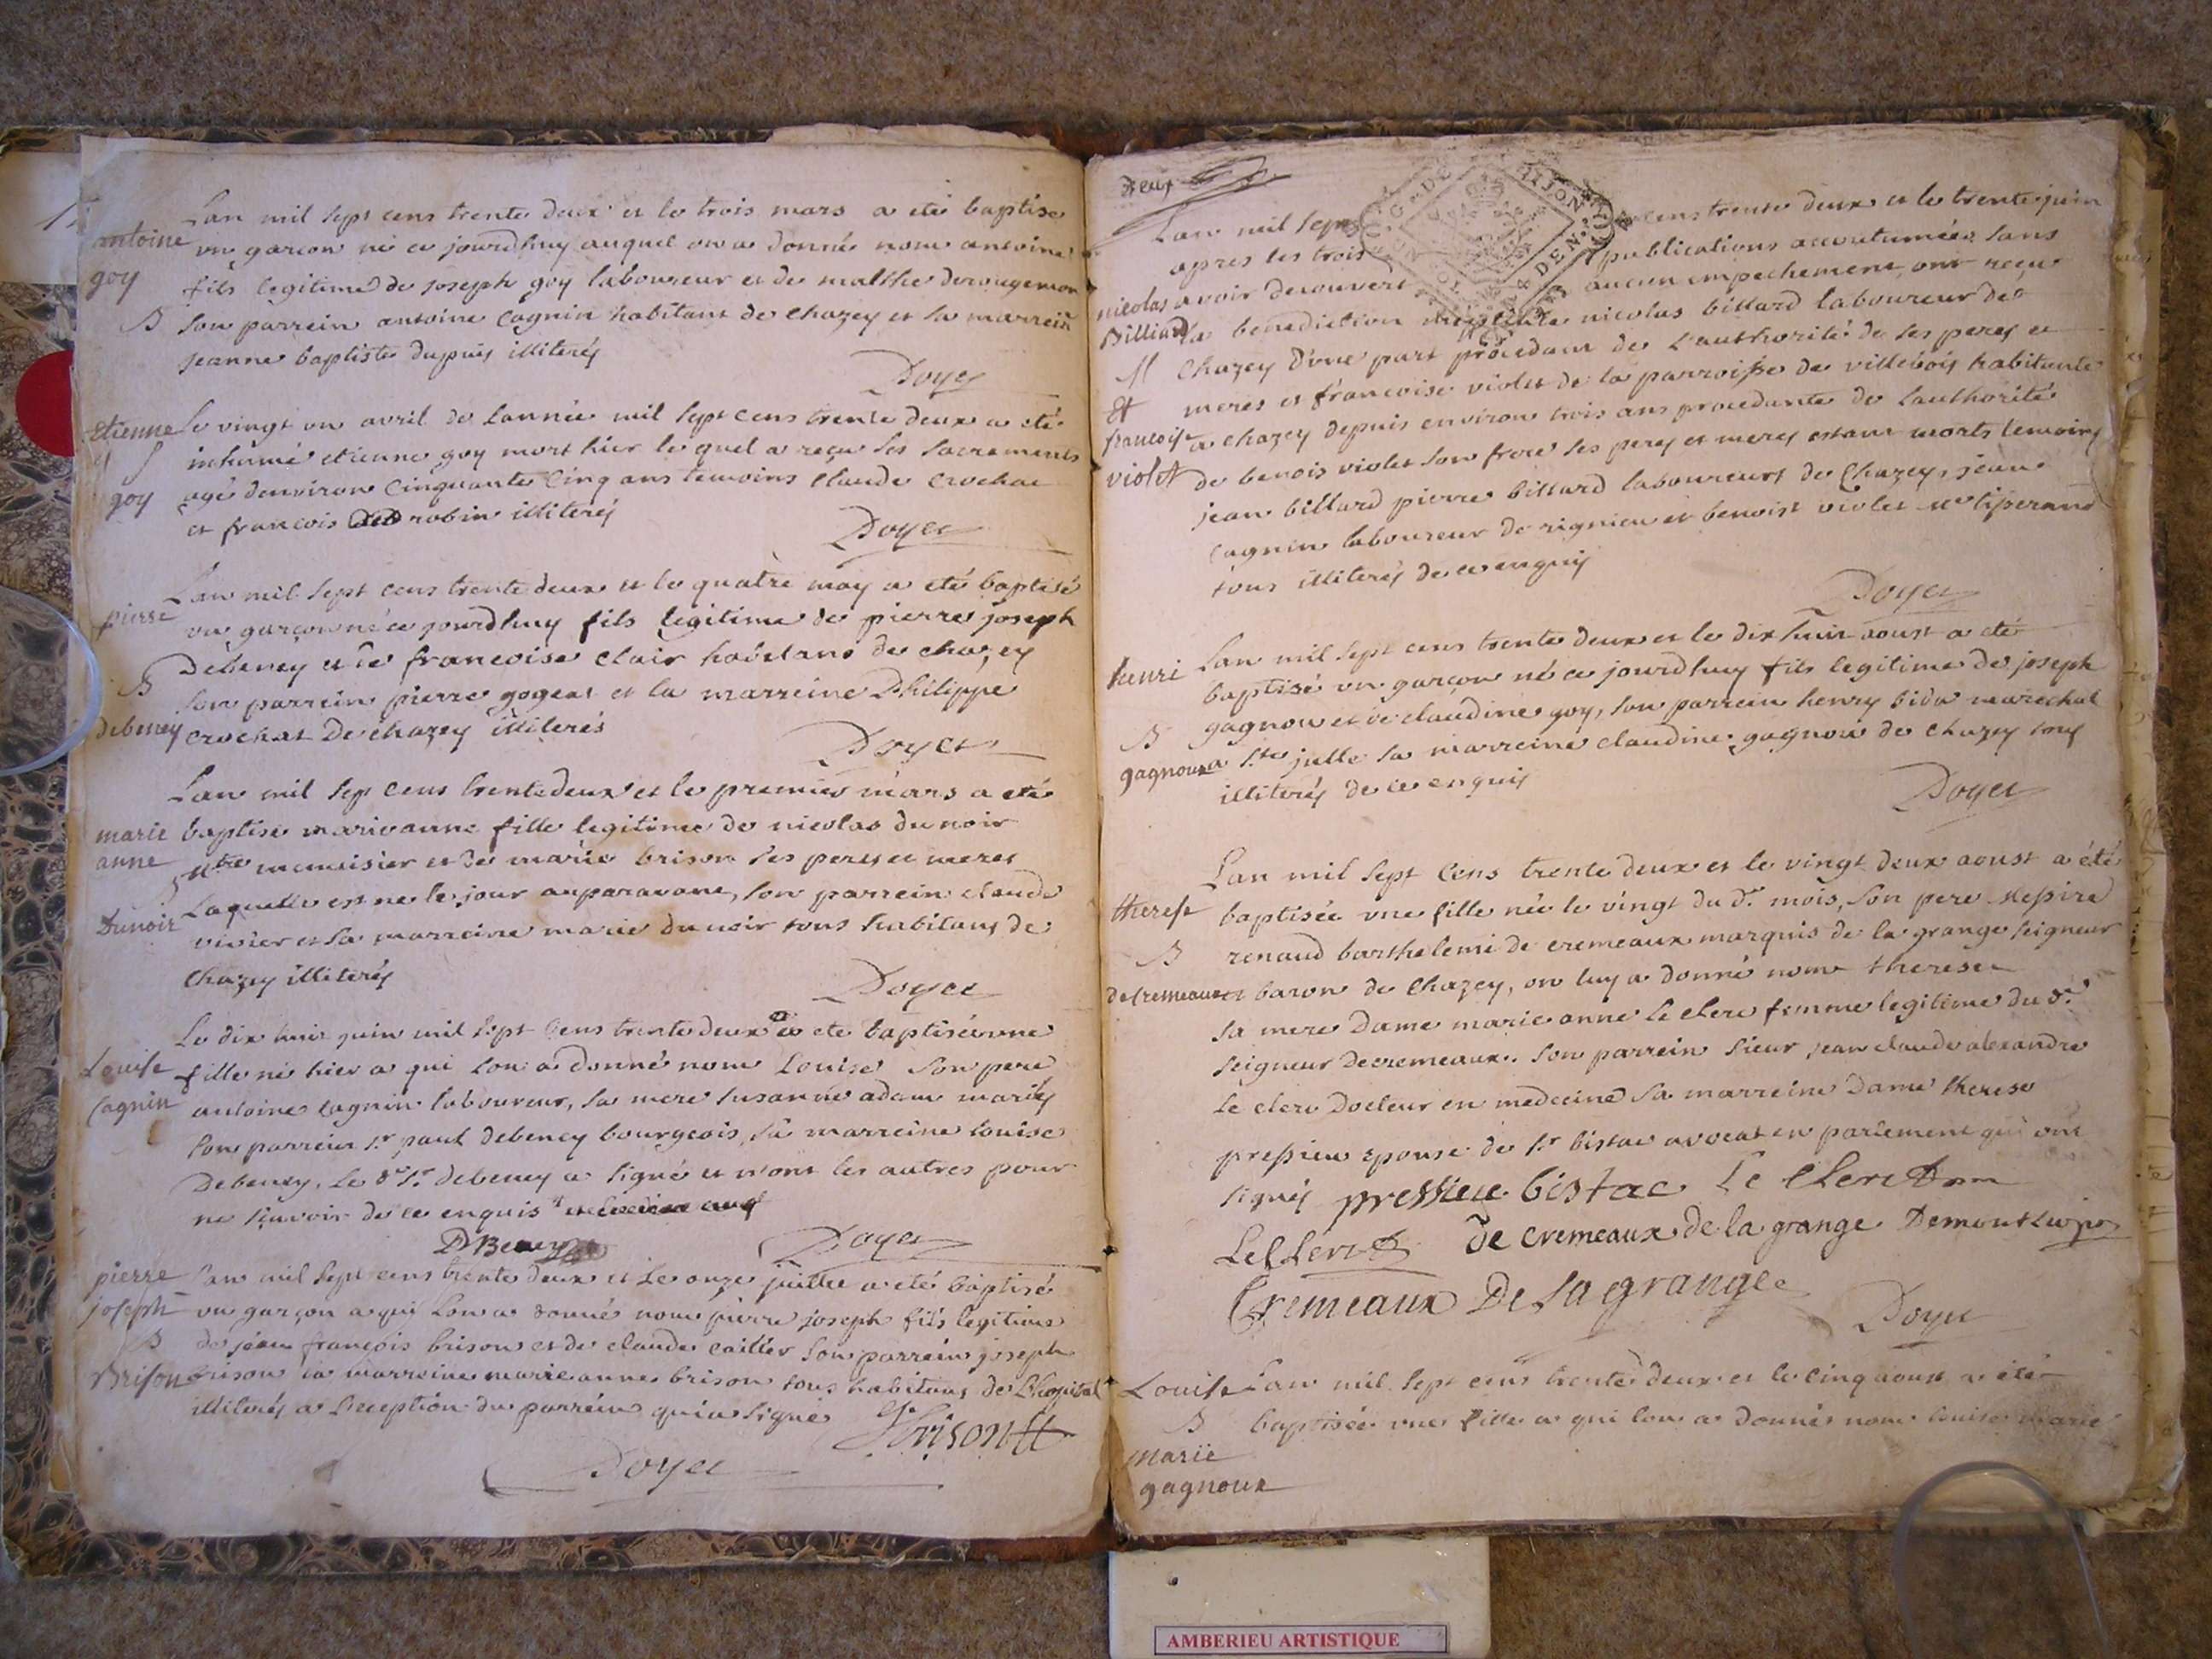 antoine
goy
B
Lan mil sept cens trente deux et le trois mars a eté baptise
un garcon né ce jourdhuy auquel on a donné nom antoine
fils legitime de joseph goy laboureur et de malthe derougemon
son parrein antoine cagnin habitant de chazey et sa marrein
jeanne baptiste dupuis illiterés
Doyet
etienne
S
goy
Le vingt un avril de lannée mil sept cens trente deux a eté
inhumé etienne goy mort hier le quel a reçu les sacrements
agé denviron cinquante cinq ans temoins claude crochat
et francois robin illiterés
Doyet
pierre
B
debeney
Lan mil sept cens trente deux et le quatre may a eté baptisé
un garcon né ce jourdhuy fils legitime de pierre joseph
Debeney et de francoise clair habitans de chazey
son parrein pierre gogeat et la marreine Philippe
crochat De chazey illiterés
Doyet
marie
anne
B
Dunoir
Lan mil sept cens trente deux et le premier mars a eté
baptisé marie anne fille legitime de nicolas dunoir
Mtre menuisier et de marie brison ses peres et meres
Laquelle est ne le jour auparavant, son parrein claude
vivier et sa marreine marie dunoir tous habitans de
Chazey illiterés
Doyet
Louise
Cagnin
Le dix huit juin mil sept cens trente deux a eté baptisé une
fille né hier a qui lon a donné nom Louise son pere
antoine cagnin laboureur, sa mere susanne adam mariés
son parrein sr paul debeney bourgeois, sa marreine louise
Debeney, Le dt sr debeney a signé et n'ont les autres pour
ne sçavoir de ce enquis
DBeney
Doyet
pierre
joseph
B
Brison
Lan mil sept cens trente deux et le onze juillet a eté baptisé
un garçon a qui lon a donné nom pierre joseph fils legitime
de jean françois brison et de claude caillet son parrein joseph
brison sa marreine marie anne brison tous habitans de Lhopital
illiterés a lexception du parrein qui a signé
J Brison
Doyet
deux
nicolas
Billiard
M
et
francoise
violet
Lan mil sept cens trente deux et le trente juin
apres les trois publications accoutumées sans
avoir decouvert aucun empechement, ont reçu
la benediction nuptiale nicolas billard laboureur de
Chazey d'une part procedant de l'authorité de ses peres et
meres et francoise violet de la parroisse de villebois habitante
a chazey depuis environ trois ans procedante de lauthorité
de benois violet son frere ses peres et meres estant morts temoins
jean billard pierre billard laboureurs de Chazey, jean
cagnin laboureur de rignieu et benoist violet me tisserand
tous illiterés de ce enquis
Doyet
henri
B
gagnoux
Lan mil sept cens trente deux et le dix huit aoust a eté
baptisé un garçon né ce jourdhuy fils legitime de joseph
gagnou et de claudine goy, son parrein henry bida marechal
a ste julle sa marreine claudine gagnou de chazey tous
illiterés de ce enquis
Doyet
therese
B
decremeaux
Lan mil sept cens trente deux et le vingt deux aoust a été
baptisée une fille née le vingt du dt mois, son pere Messire
renaud barthelemi de cremeaux marquis de la grange seigneur
et baron de Chazey, on luy a donné nom therese
sa mere Dame marie anne Le clerc femme legitime du dt
seigneur decremeaux. son parrein sieur jean claude alexandre
Le clerc Docteur en medecine sa marreine Dame therese
pressieu epouse de sr bistac avocat en parlement qui ont
signés pressieu bistac Le Clerc
LeClerc de cremeaux de la grange
Cremeaux De la grange
Doyet
Louise
B
marie
gagnoux
Lan mil sept cens trente deux et le cinq aoust a eté
baptisée une fille a qui lon a donnés nom louise marie
AMBERIEU ARTISTIQUE